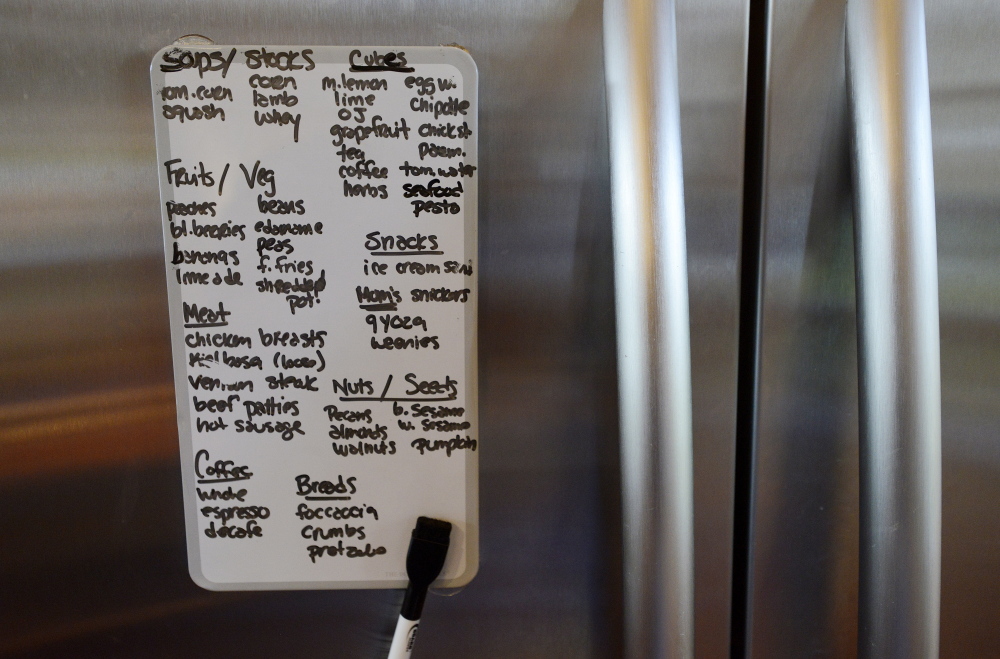 Soups/ Stocks
tom. corn
squash
corn
lamb
whey
Cubes
m.lemon
lime
OJ
grapefruit
tea
coffee
herbs
egg w.
chipotle
chickst.
parm.
tom. water
seafood
pesto
Fruits/ Veg
peaches
bl.berries
bananas
limeade
beans
edamame
peas
f. fries
shredded
pot!
Snacks
ice cream san
Mom's snickers
gyoza
weenies
Meat
chicken breasts
kielbasa (loose)
venison steak
beef patties
hot sausage
Nuts / Seeds
Pecans
almonds
walnuts
b. Sesame
w. Sesame
pumpkin
Coffee
whole
espresso
decafe
Breads
foccaccia
crumbs